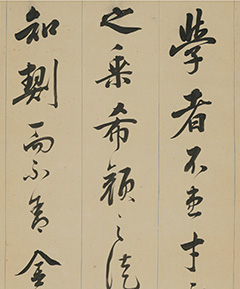 學者不患才
之乘希顏之徒
知契而不舍金